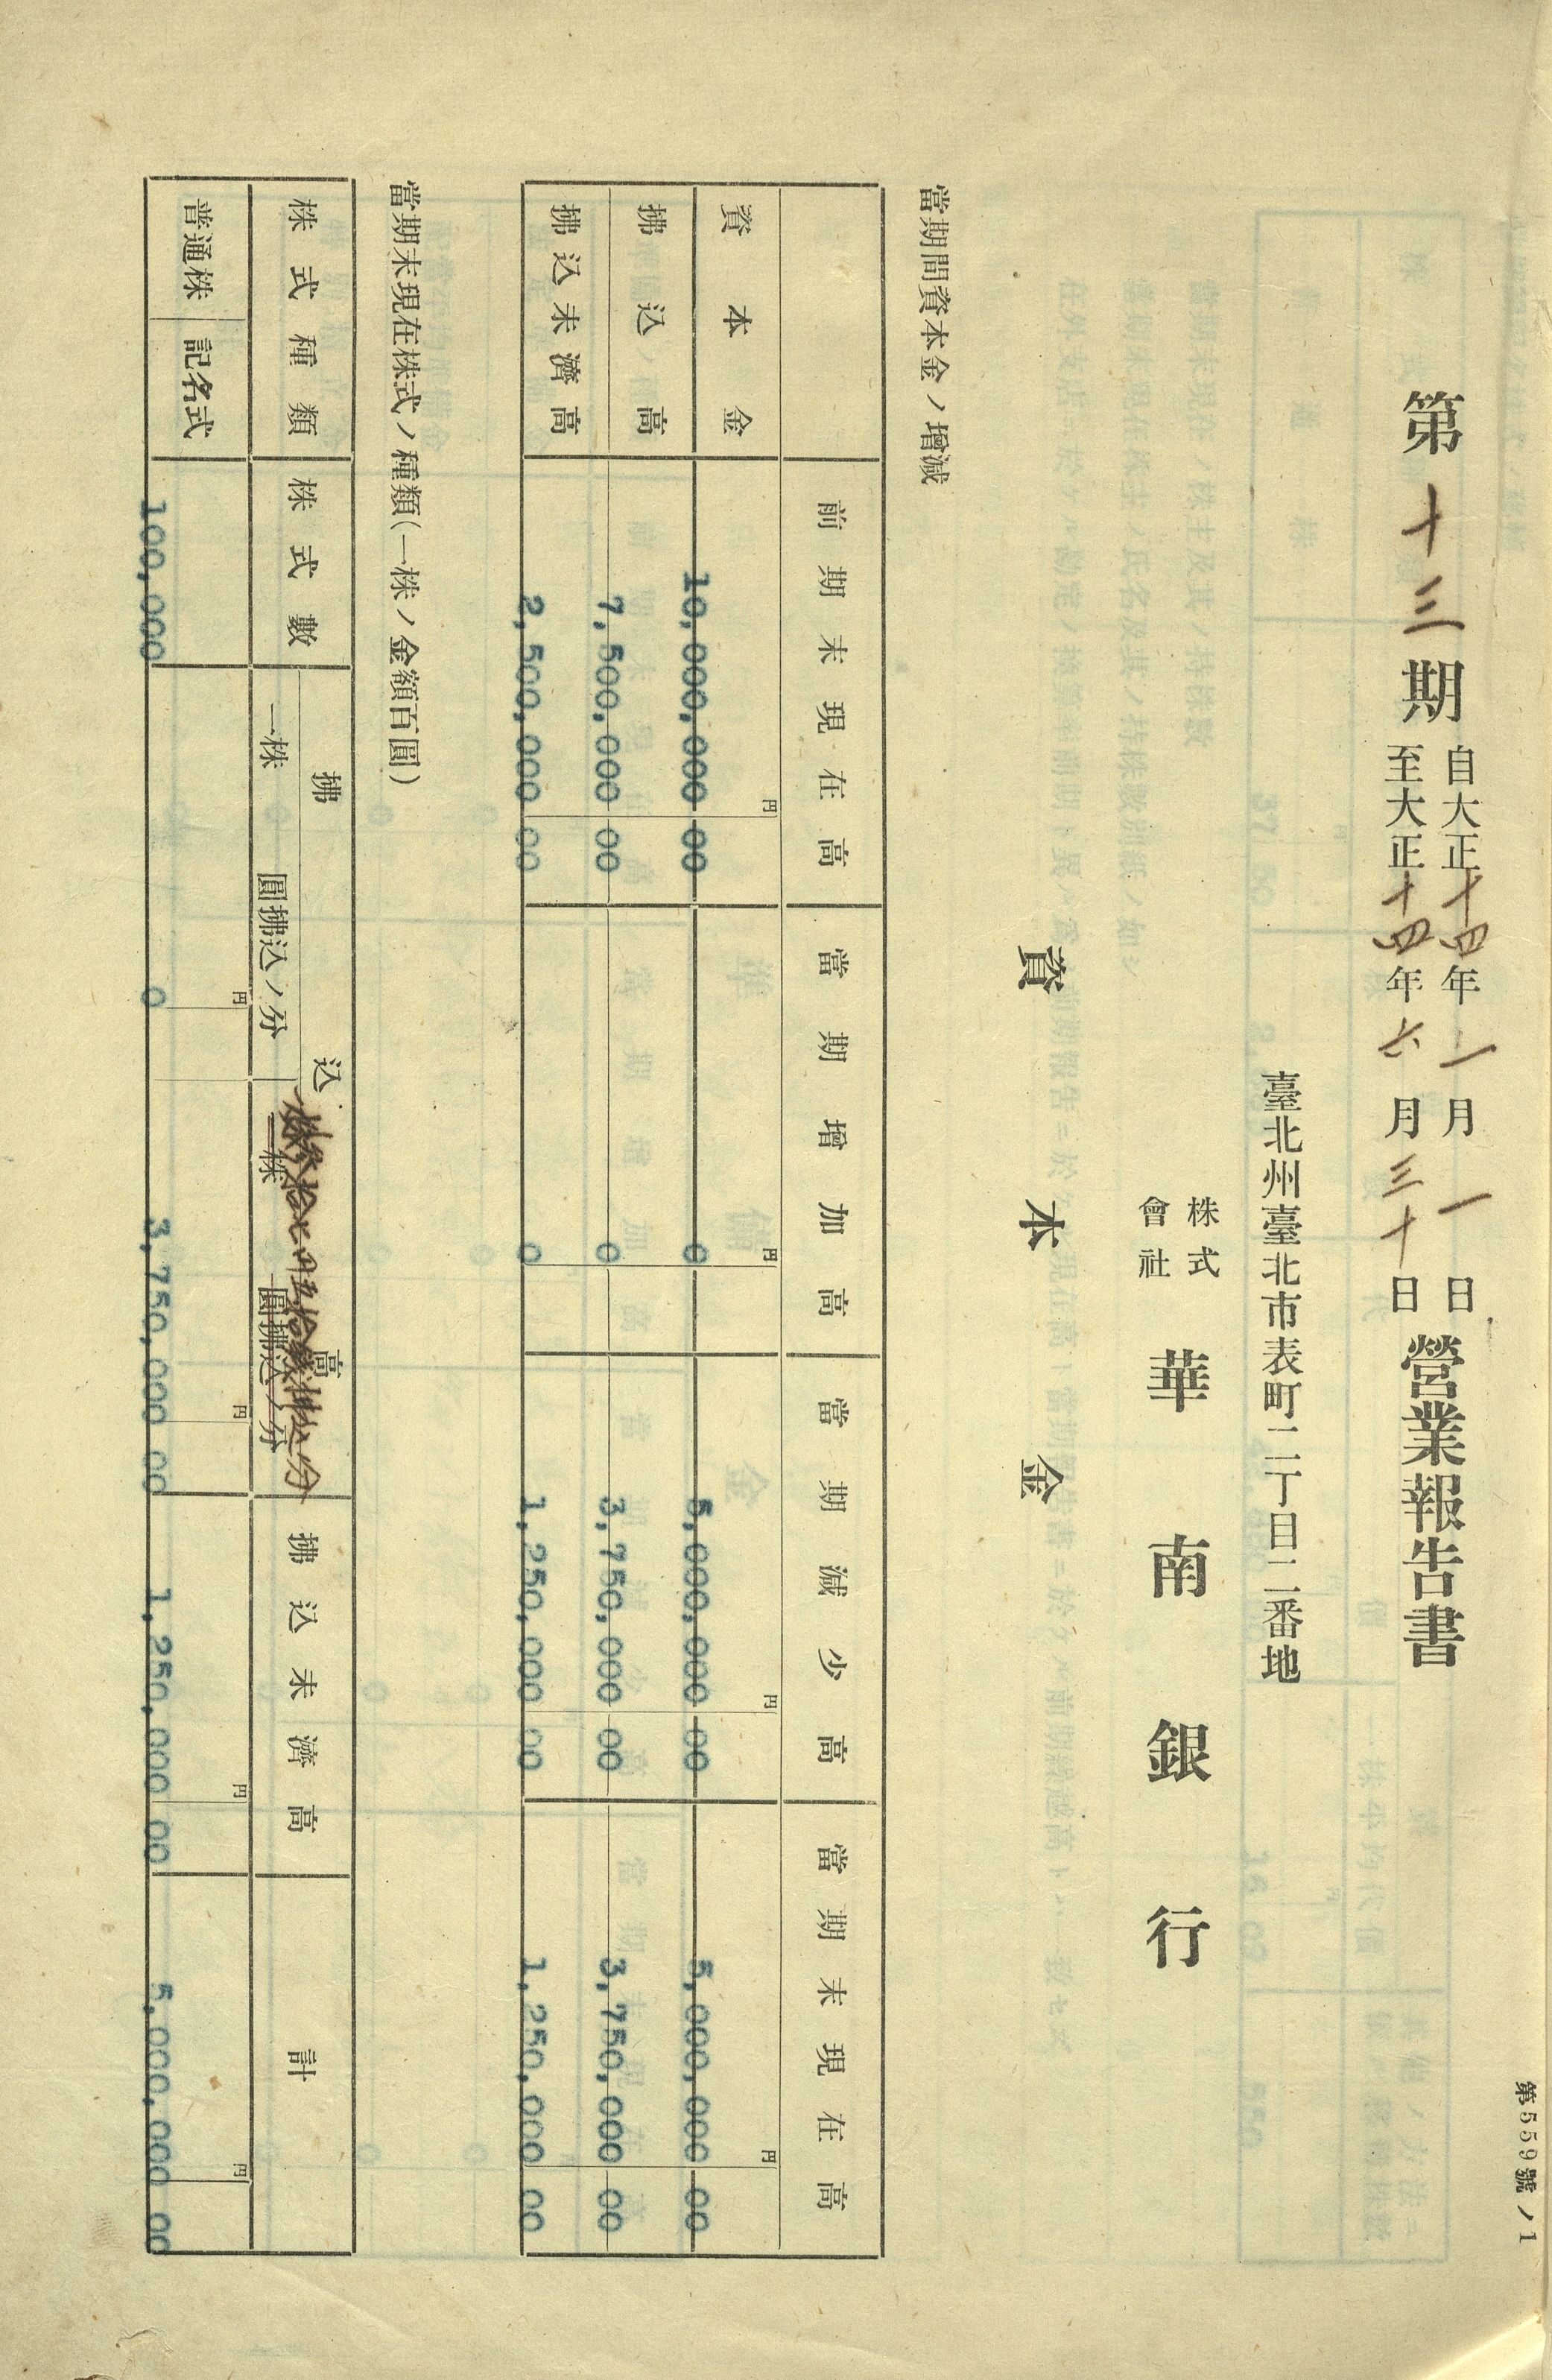 第559號ノ1
第十三期 自大正十四年一月一日 至大正十四年六月三十日 營業報告書
臺北州臺北市表町二丁目二番地
株式會社 華南銀行
資本金
當期間資本金ノ增減
前期末現在高 當期增加高 當期減少高 當期末現在高
円 円 円 円
資本金 10,000,000 00 0 5,000,000 00 5,000,000 00
拂込高 7,500,000 00 0 3,750,000 00 3,750,000 00
拂込未濟高 2,500,000 00 0 1,250,000 00 1,250,000 00
當期末現在株式ノ種類(一株ノ金額百圓)
株式種類 株式數 拂込高 拂込未濟高 計
一株 圓拂込ノ分 一株 圓拂込ノ分
拾七円五拾錢拂込ノ分
円 円 円 円
普通株 記名式 100,000 0 3,750,000 00 1,250,000 00 5,000,000 00